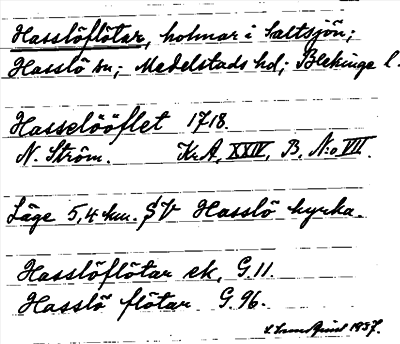 Hasslöflötar, holmar i Saltsjön;
Hasslö sn; Medelstads hd; Blekinge l.
Hasselööflet 1718.
N. Ström. Kr. A, XXIV, B, N:o VII.
Läge 5,4 km. SV Hasslö kyrka.
Hasslöflötar ek, G. 11.
Hasslö flötar G. 96.
1937.